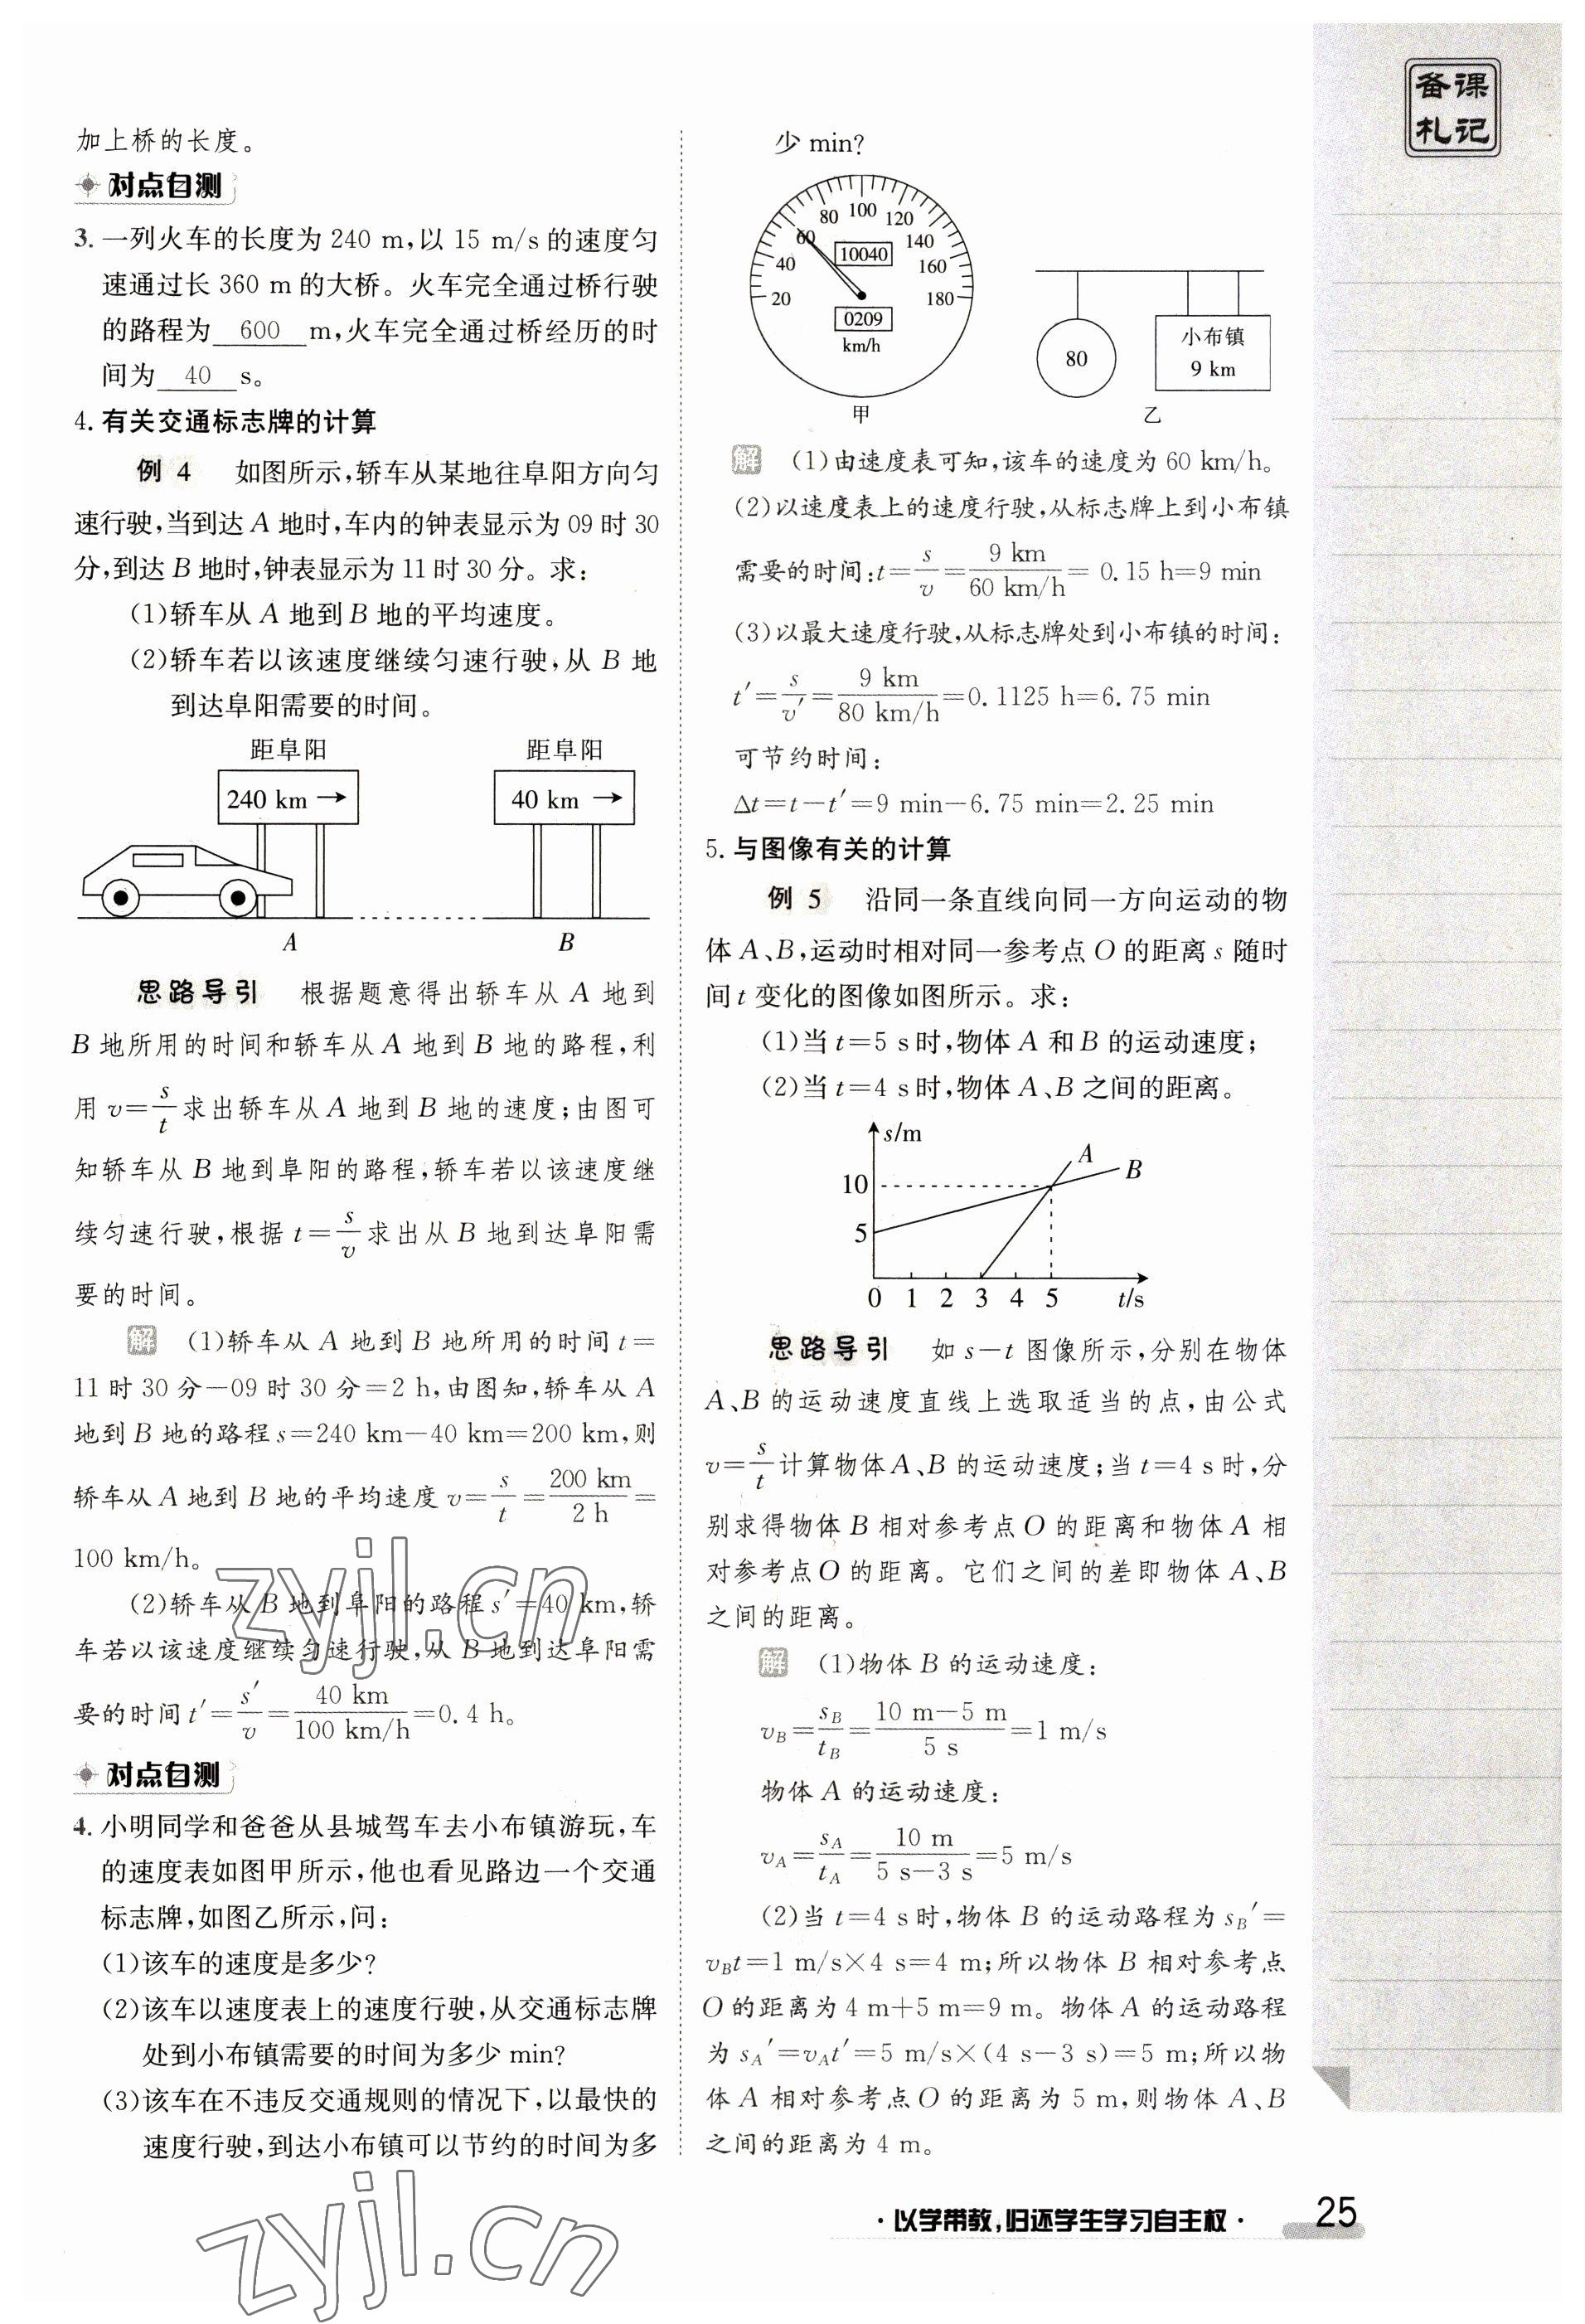 加上桥的长度。
对点自测
3. 一列火车的长度为 240 m,以 15 m/s 的速度匀
速通过长 360 m 的大桥。火车完全通过桥行驶
的路程为 600 m,火车完全通过桥经历的时
间为 40 s。
4. 有关交通标志牌的计算
例 4 如图所示,轿车从某地往阜阳方向匀
速行驶,当到达 A 地时,车内的钟表显示为 09 时 30
分,到达 B 地时,钟表显示为 11 时 30 分。求:
(1)轿车从 A 地到 B 地的平均速度。
(2)轿车若以该速度继续匀速行驶,从 B 地
到达阜阳需要的时间。
距阜阳 距阜阳
240 km → 40 km →
A B
思路导引 根据题意得出轿车从 A 地到
B 地所用的时间和轿车从 A 地到 B 地的路程,利
用 v=s/t 求出轿车从 A 地到 B 地的速度;由图可
知轿车从 B 地到阜阳的路程,轿车若以该速度继
续匀速行驶,根据 t=s/v 求出从 B 地到达阜阳需
要的时间。
解 (1)轿车从 A 地到 B 地所用的时间 t=
11 时 30 分-09 时 30 分=2 h,由图知,轿车从 A
地到 B 地的路程 s=240 km-40 km=200 km,则
轿车从 A 地到 B 地的平均速度 v=s/t=200 km/2 h=
100 km/h。
(2)轿车从 B 地到阜阳的路程 s′=40 km,轿
车若以该速度继续匀速行驶,从 B 地到达阜阳需
要的时间 t′=s′/v=40 km/100 km/h=0.4 h。
对点自测
4. 小明同学和爸爸从县城驾车去小布镇游玩,车
的速度表如图甲所示,他也看见路边一个交通
标志牌,如图乙所示,问:
(1)该车的速度是多少?
(2)该车以速度表上的速度行驶,从交通标志牌
处到小布镇需要的时间为多少 min?
(3)该车在不违反交通规则的情况下,以最快的
速度行驶,到达小布镇可以节约的时间为多
少 min?
20 40 60 80 100 120 140 160 180
10040
0209
km/h
甲
80
小布镇
9 km
乙
解 (1)由速度表可知,该车的速度为 60 km/h。
(2)以速度表上的速度行驶,从标志牌上到小布镇
需要的时间:t=s/v=9 km/60 km/h= 0.15 h=9 min
(3)以最大速度行驶,从标志牌处到小布镇的时间:
t′=s/v′=9 km/80 km/h=0.1125 h=6.75 min
可节约时间:
Δt=t-t′=9 min-6.75 min=2.25 min
5. 与图像有关的计算
例 5 沿同一条直线向同一方向运动的物
体 A、B,运动时相对同一参考点 O 的距离 s 随时
间 t 变化的图像如图所示。求:
(1)当 t=5 s时,物体 A 和 B 的运动速度;
(2)当 t=4 s时,物体 A、B 之间的距离。
s/m
A
B
10
5
0 1 2 3 4 5 t/s
思路导引 如 s-t 图像所示,分别在物体
A、B 的运动速度直线上选取适当的点,由公式
v=s/t 计算物体 A、B 的运动速度;当 t=4 s时,分
别求得物体 B 相对参考点 O 的距离和物体 A 相
对参考点 O 的距离。它们之间的差即物体 A、B
之间的距离。
解 (1)物体 B 的运动速度:
vB=sB/tB=10 m-5 m/5 s=1 m/s
物体 A 的运动速度:
vA=sA/tA=10 m/5 s-3 s=5 m/s
(2)当 t=4 s时,物体 B 的运动路程为 sB′=
vBt=1 m/s×4 s=4 m;所以物体 B 相对参考点
O 的距离为 4 m+5 m=9 m。物体 A 的运动路程
为 sA′=vAt′=5 m/s×(4 s-3 s)=5 m;所以物
体 A 相对参考点 O 的距离为 5 m,则物体 A、B
之间的距离为 4 m。
备课
札记
·以学带教,归还学生学习自主权·
25
zyjl.cn
zyjl.cn